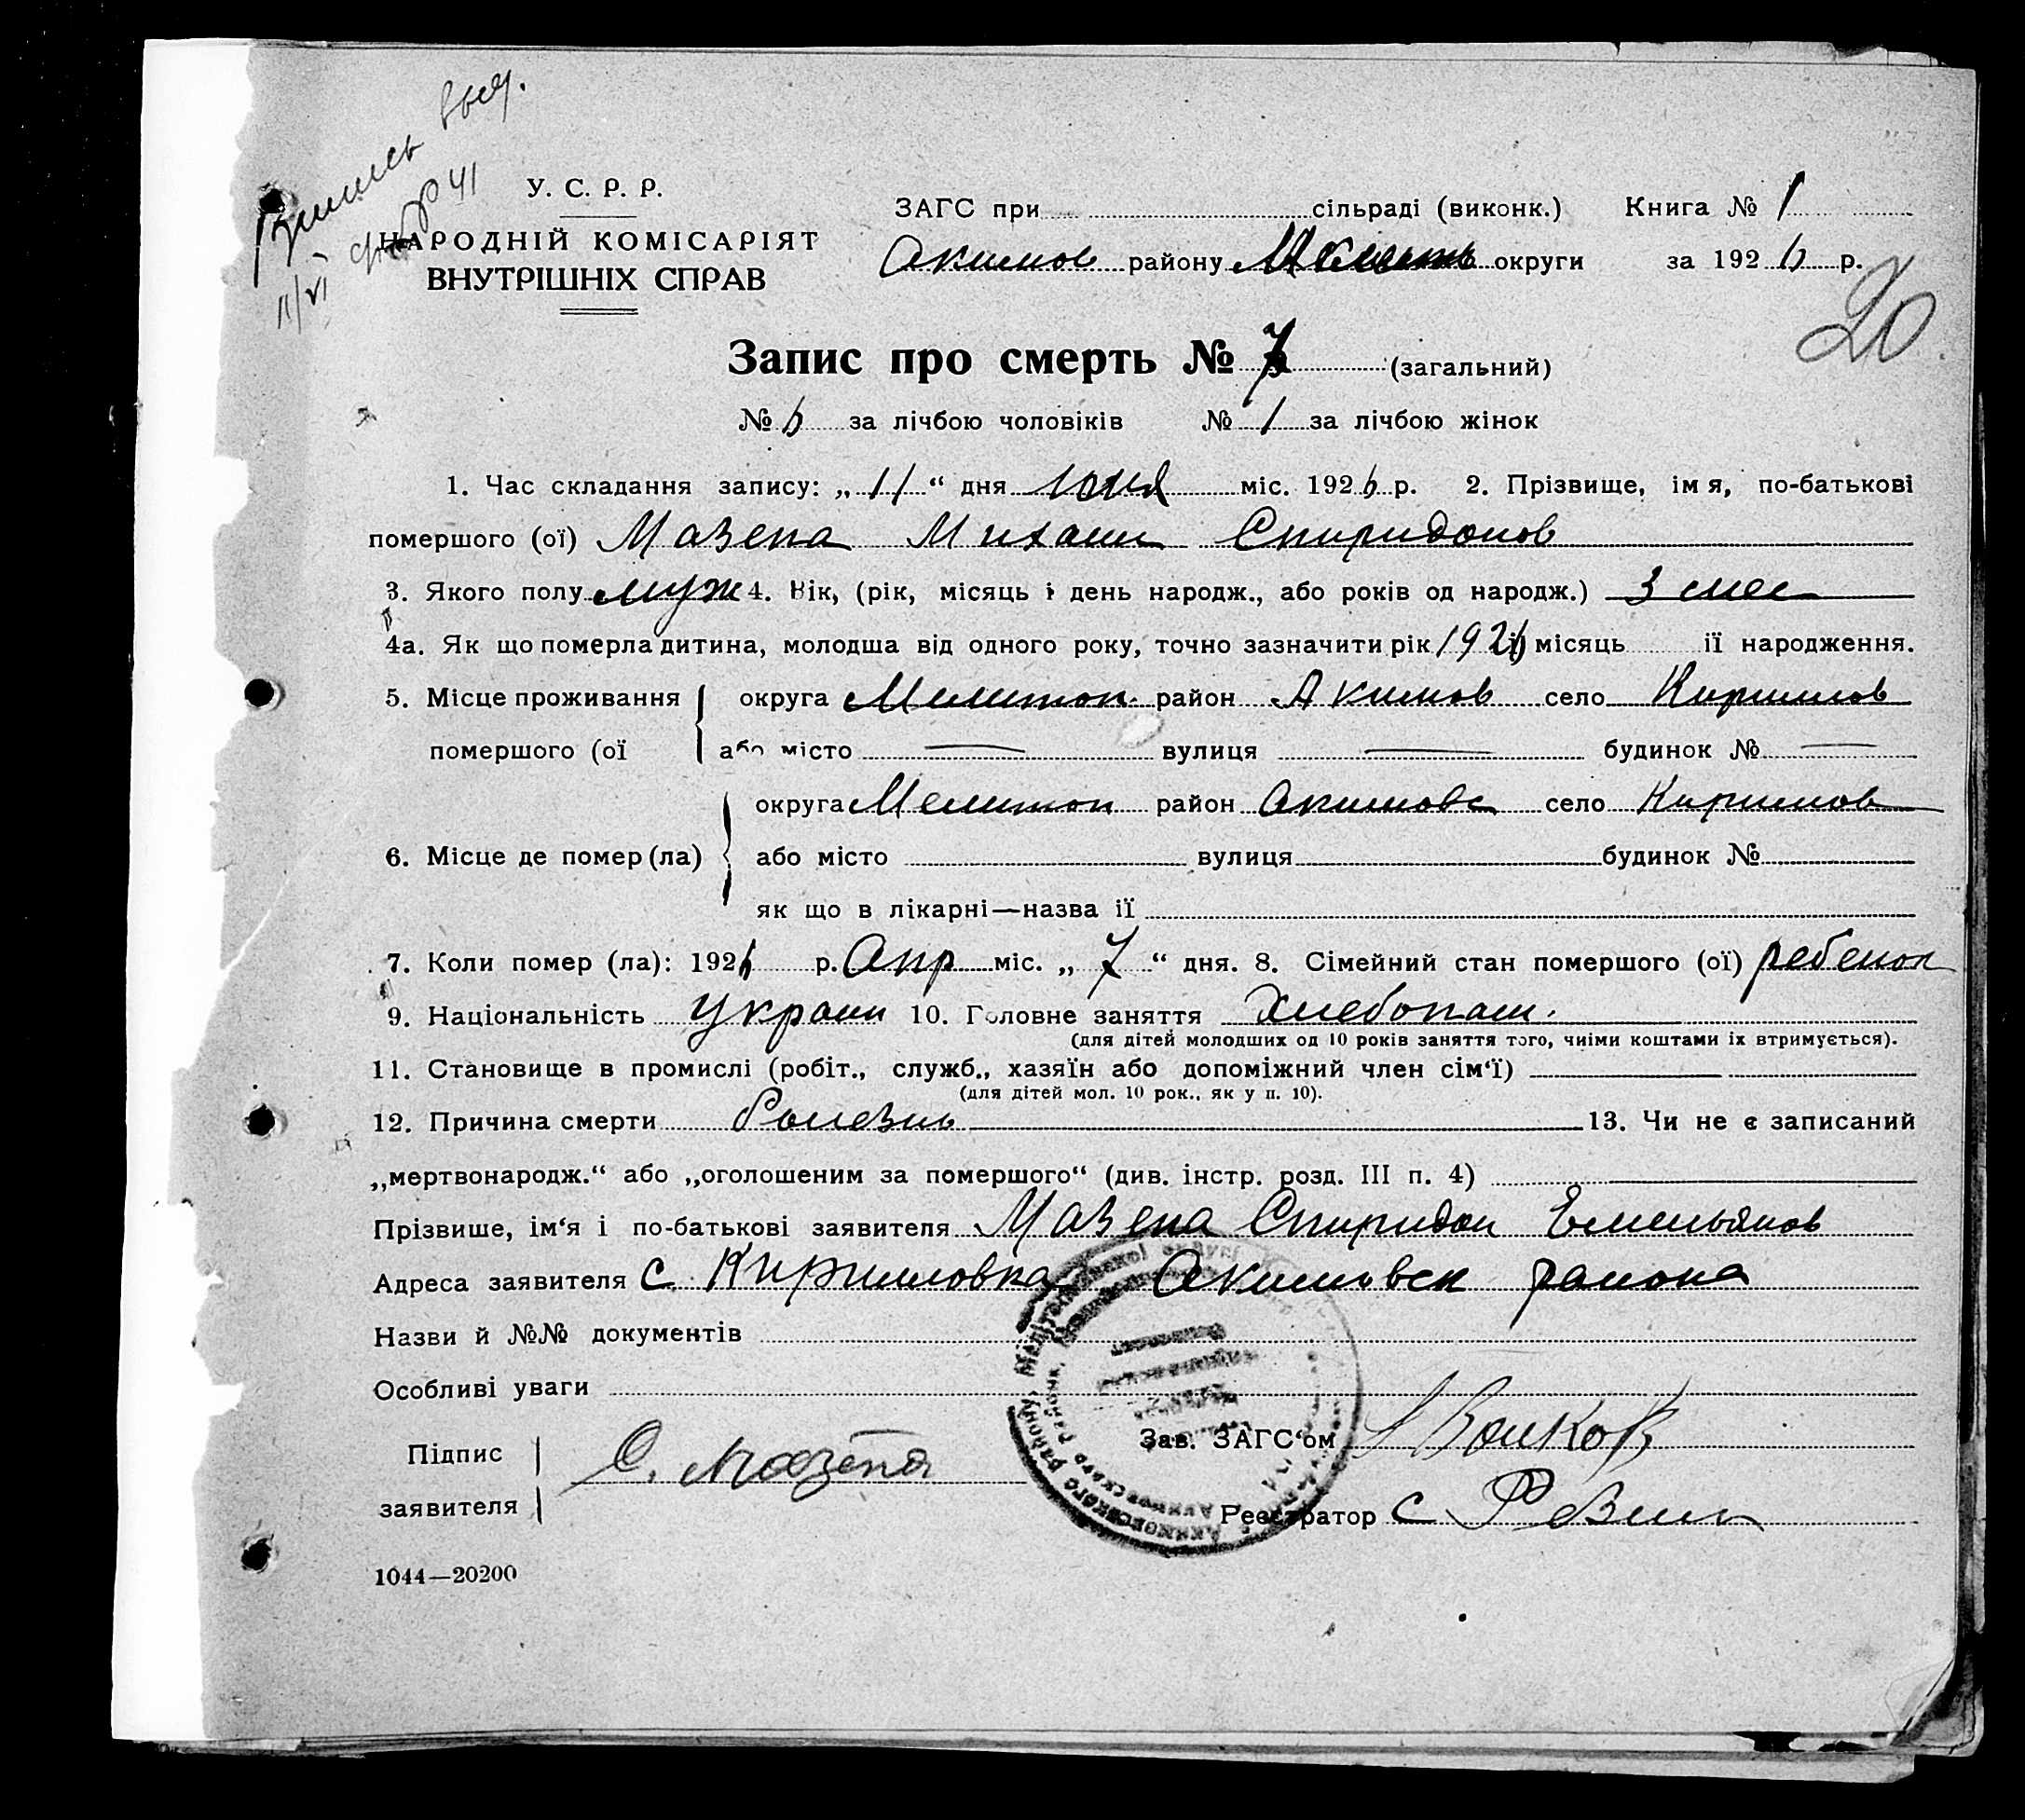 выд.
У. С. Р. Р.
ЗАГС при сільраді (виконк.) Книга № 1
НАРОДНІЙ КОМІСАРІЯТ
Акимов району округи за 1926 р.
ВНУТРІШНІХ СПРАВ
11/VI
20
Запис про смерть № 7 (загальний)
№ 6 за лічбою чоловіків № 1 за лічбою жінок
1. Час складання запису: „ 11 “ дня июня міс. 1926 р. 2. Прізвище, імя, по-батькові
помершого (ої) Мазепа Михаил Спиридонов
3. Якого полу муж 4. Вік, (рік, місяць і день народж., або років од народж.) 3 мес
4а. Як що померла дитина, молодша від одного року, точно зазначити рік 1926 і) місяць її народження.
5. Місце проживання округа Мелитоп. район Акимов село Кирилов
помершого (ої або місто — вулиця — будинок № —
округа Мелитоп район Акимовс село Кирилов
6. Місце де помер (ла) або місто вулиця будинок №
як що в лікарні—назва її
7. Коли помер (ла): 1926 р. Апр міс. „ 7 “ дня. 8. Сімейний стан помершого (ої) ребенок
9. Національність Украин 10. Головне заняття Хлебопаш.
(для дітей молодших од 10 років заняття того, чиїми коштами їх втримується).
11. Становище в промислі (робіт., служб., хазяїн або допоміжний член сім‘ї)
(для дітей мол. 10 рок., як у п. 10).
12. Причина смерти болезнь 13. Чи не є записаний
„мертвонародж.“ або „оголошеним за помершого“ (див. інстр. розд. III п. 4)
Прізвише, ім‘я і по-батькові заявителя Мазепа Спиридон Емельянов
Адреса заявителя с. Кирилловка Акимовск района
Назви й №№ документів
Особливі уваги
Підпис
заявителя С. Мазепа
Зав. ЗАГС‘ом Волков
Реєстратор С
1044—20200